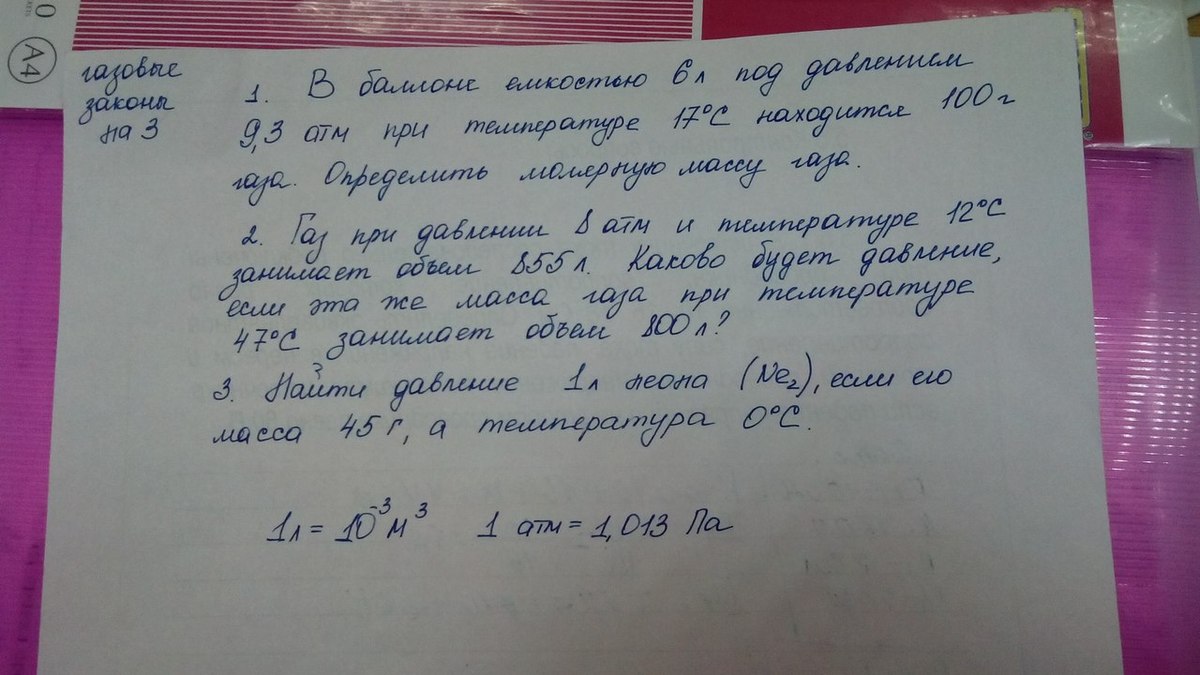 0
A4
газовые
законы
на 3
1. В баллоне емкостью 6л под давлением
9,3 атм при температуре 17°С находится 100г
газа. Определить молярную массу газа.
2. Газ при давлении 8 атм и температуре 12°С
занимает объем 855 л. Каково будет давление,
если эта же масса газа при температуре
47°С занимает объем 800 л?
3. Найти давление 1л неона (Ne₂), если его
масса 45 г, а температура 0°С.
1л = 10⁻³ м³ 1 атм = 1,013 Па